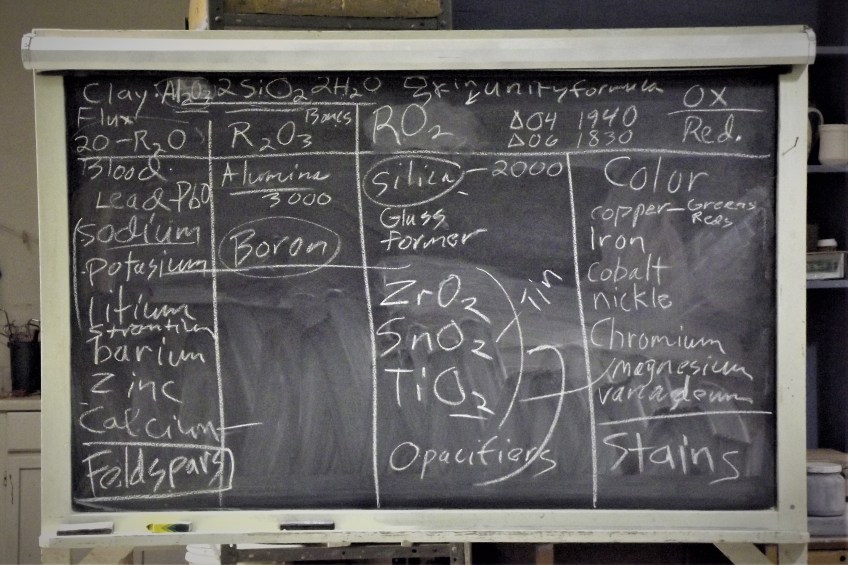 Clay: Al2O3 2SiO2 2H2O unity formula
OX
Red.
Flux
20-R2O
Bones
R2O3
RO2
Δ04 1940
Δ06 1830
Blood
Lead PbO
sodium
potasium
Litium
Strontium
barium
Zinc
Calcium
Feldspars
Alumina
3000
Boron
Silica - 2000
Glass
former
ZrO2
SnO2
TiO2
Tin
Opacifiers
Color
copper - Greens
Reds
Iron
Cobalt
nickle
Chromium
magnesium
vanadeum
Stains